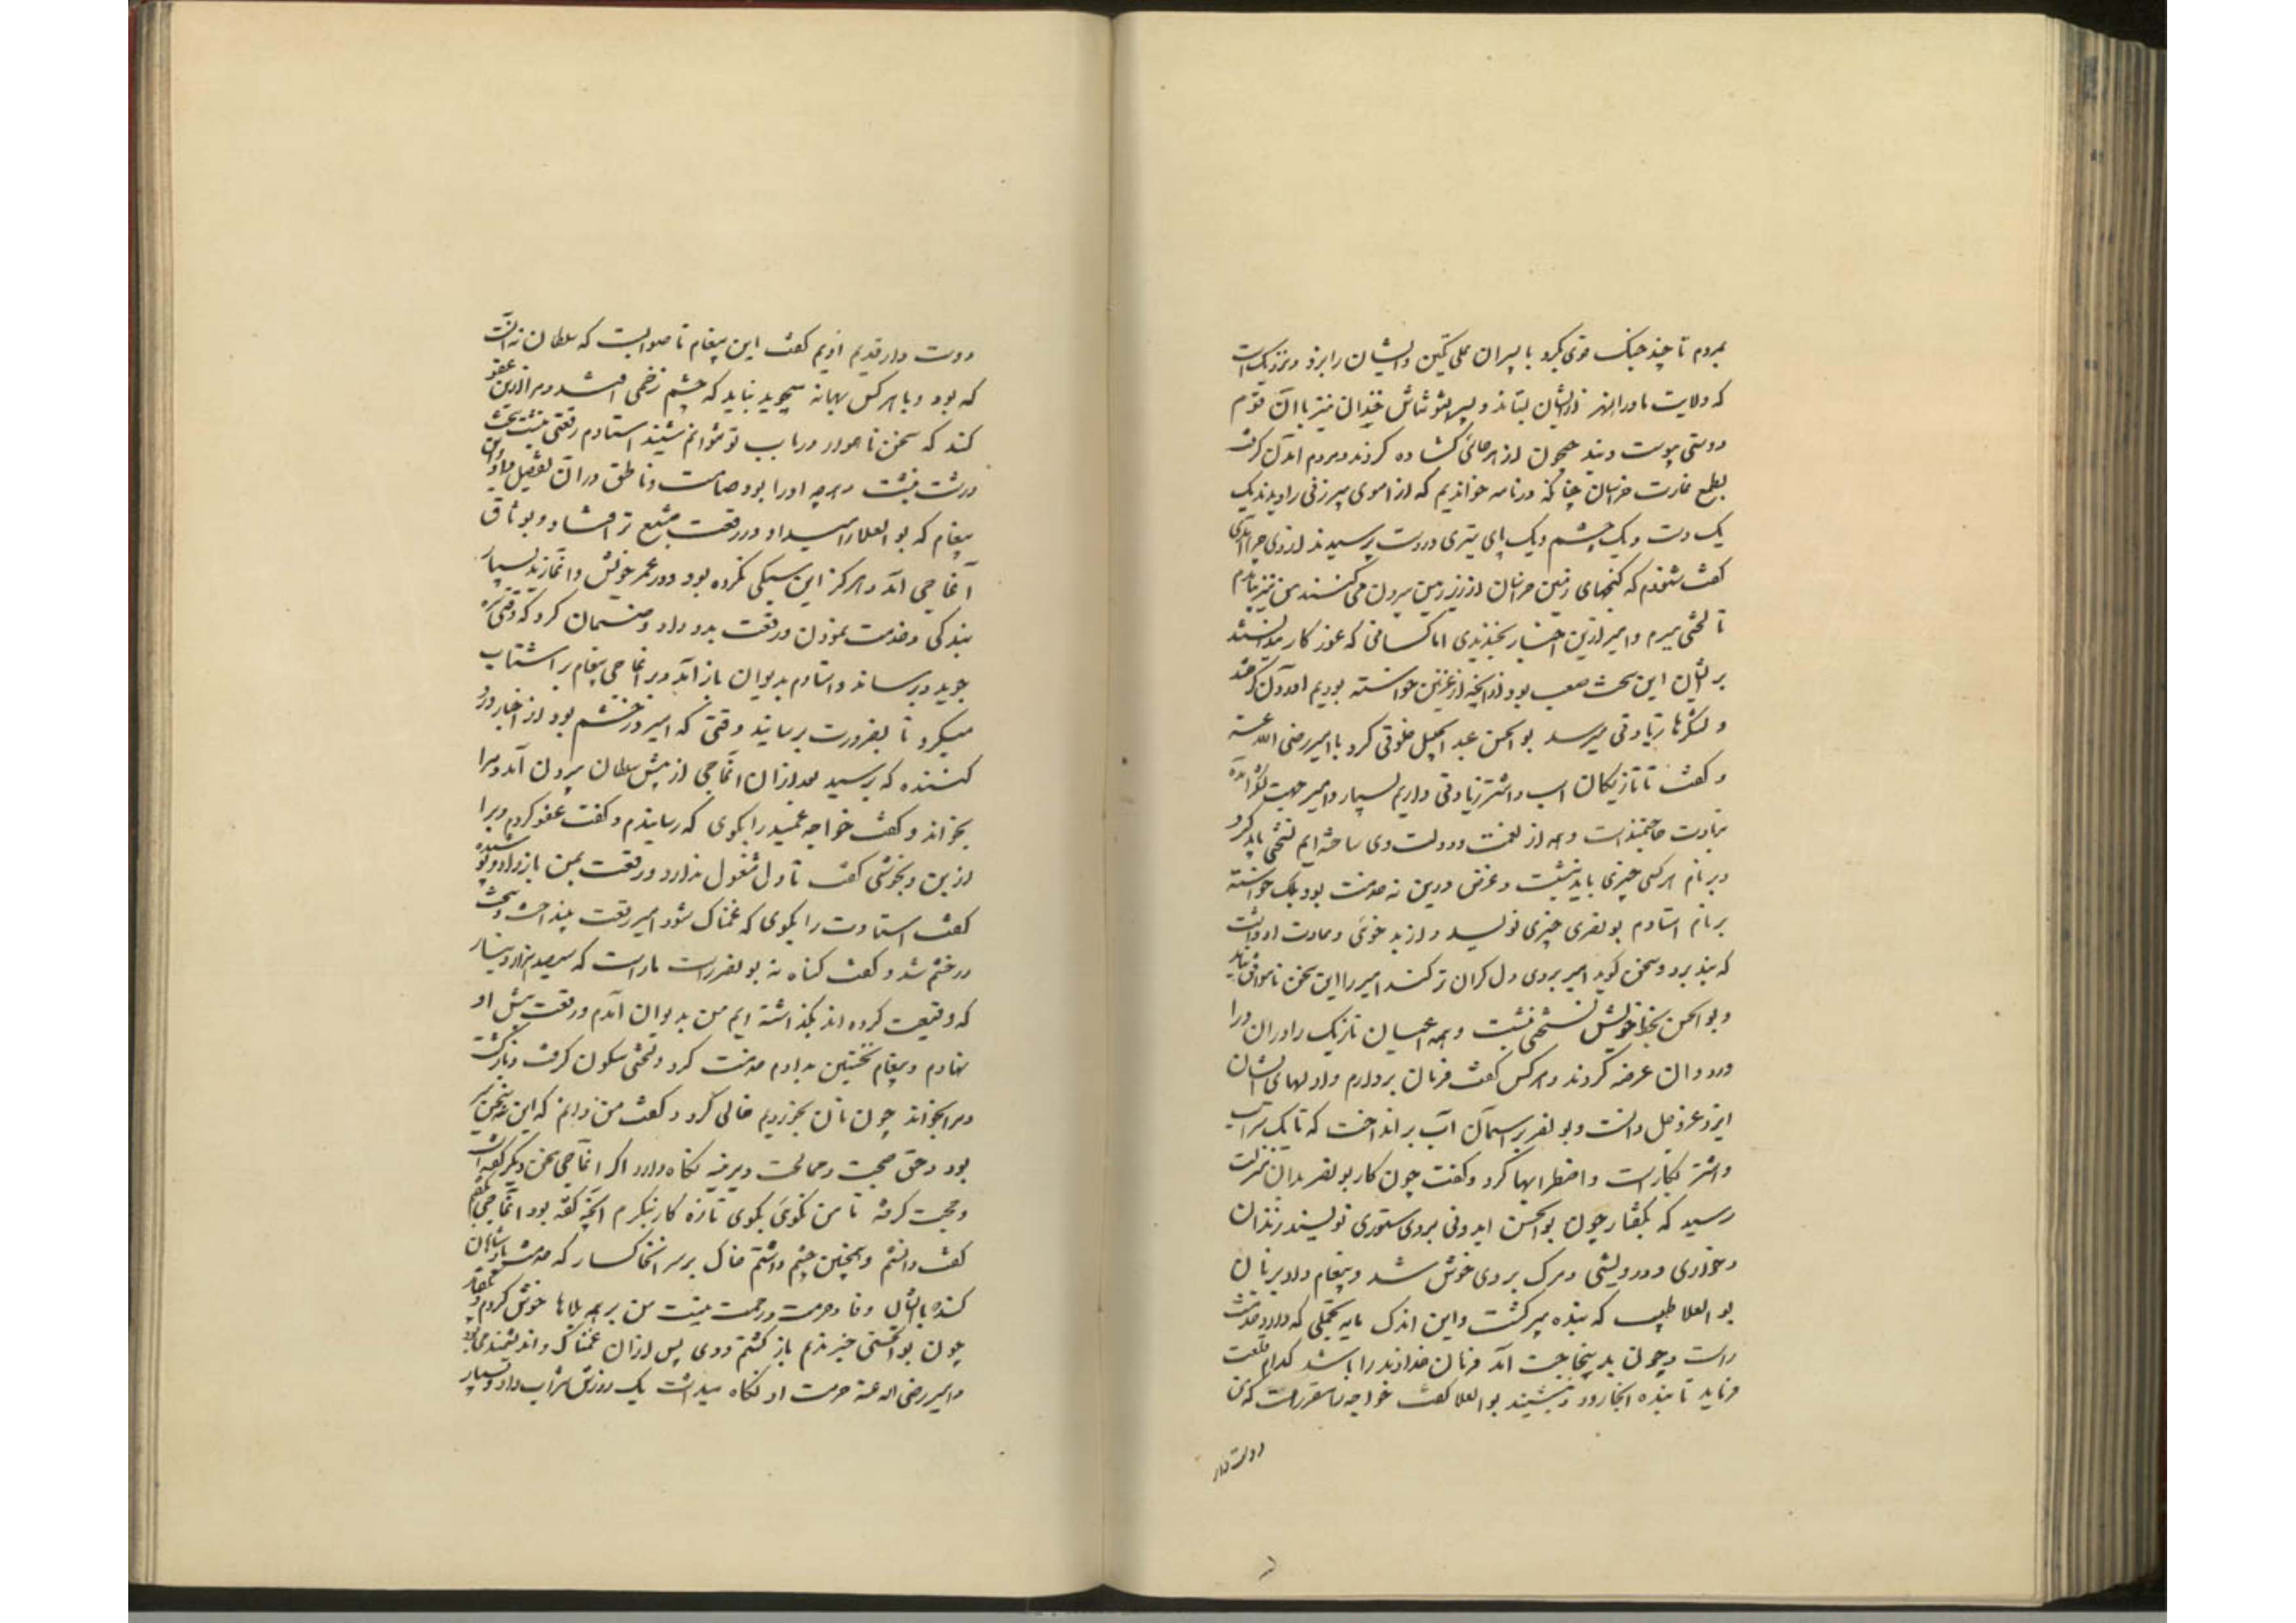 بمردم تا چند جنگ قوی بکرد با پسران علی تکین و ایشان را بزد و نزدیک است
که ولایت ماوراالنهر ازیشان بستاند و پسر التونتاش خندان نیز با آن قوم
دوستی پیوست و بند جیحون از هر جائی گشاده کردند و مردم آمدن گرفت
بطمع غارت خراسان چنانکه در نامه خواندیم که از اموی پیرزنی را دیدند یک
یک دست و یک چشم و یک پای تبری در دست پرسیدند از وی چرا آمدی
گفت شنودم که گنجهای زمین خراسان از زیر زمین بیرون می کنند من نیز بیامدم
تا لختی ببرم و امیر ازین اخبار بخندیدی اما کسانی که غور کار میدانستند
بر ایشان این سخت صعب بود و آنچه از غزنین خواسته بودیم آوردن گرفتند
و لشکرها زیادتی میرسد بوالحسن عبد الجلیل خلوتی کرد با امیر رضی الله عنه
و گفت تا تازیکان اسب و اشتر زیادتی داریم بسیار و امیر جهت لشکر آمده
بزیادت حاجتمند است و همه از نعمت و دولت وی ساخته ایم نسختی باید کرد
و بر نام هر کسی چیزی باید نبشت و غرض درین نه خدمت بود بلک خواسته
بر نام استادم بونصر چیزی نویسد و از بد خوئی و عادت او دانست
که نپذیرد و سخن گوید امیر بروی دل گران تر کند امیر را این سخن ناموافق نیامد
و بوالحسن بخط خویش نسختی نبشت و همه اعیان تازیک را در آن درآ
ورد و آن عرضه کردند و هر کس گفت فرمان بردارم و از دلهای ایشان
ایزد عز و جل دانست و بونصر بر آسمان آب بر انداخت که تا یک سر اسب
و اشتر بکار است و اضطرابها کرد و گفت چون کار بونصر بدان منزلت
رسید که بگفتار چون بوالحسن ایدونی بر وی ستوری نویسند زندان
و خواری و درویشی و مرگ بر وی خوش شد و پیغام داد بر زبان
بوالعلا طبیب که بنده پیر گشت و این اندک مایه تجملی که دارد خدمت
راست و چون بدین حاجت آمد فرمان خداوند را باشد کدام قلعت
فرماید تا بنده آنجا رود و بنشیند بوالعلا گفت خواجه را مقرر است که من
دوست دار
دوست دار قدیم اویم گفت این پیغام ناصوابست که سلطان نه آنست
که بود و با هر کس بهانه میجوید نباید که چشم زخمی افتد و مرا ازین عفو
کند که سخن ناهموار در باب تو نتوانم شنید استادم رقعتی نبشت سخت
درشت نبشت و هر چه او را بود صامت و ناطق در آن تفصیل داد و این
پیغام که بوالعلا را میداد در رقعت مشبع تر افتاد و بوثاق
آغاجی آمد و هرگز این سبکی نکرده بود در عمر خویش و آغازید بسیار
بندگی و خدمت نمودن و رقعت بدو داد و ضمان کرد که وقتی که
جوید و برساند و استادم بدیوان باز آمد و بر آغاجی پیغام بر شتاب
میکرد تا بضرورت برسانید وقتی که امیر در خشم بود از اخبار درد
کننده که برسید بعد از آن آغاجی از پیش سلطان بیرون آمد و مرا
بخواند و گفت خواجه عمید را بگوی که رسانیدم و گفت عفو کردم ویرا
ازین و بخوشی گفت تا دل مشغول ندارد و رقعت بمن باز داد و پوشیده
گفت استادت را بگوی که غمناک شود امیر رقعت بینداخت و سخت
در خشم شد و گفت گناه نه بونصر راست ما راست که سیصد هزار دینار
که وقیعت کرده اند بگذاشته ایم من بدیوان آمدم و رقعت پیش او
نهادم و پیغام نخستین بدادم خدمت کرد و لختی سکون گرفت و باز گشت
و مرا بخواند چون نان بخوردیم خالی کرد و گفت من دانم که این نه سخن امیر
بود و حق صحبت و ممالحت دیرینه نگاه دارد اگر آغاجی سخن دیگر گفته است
و حجت گرفته تا من نگوئی بگوی تا ره کار بنگرم آنچه گفته بود آغاجی بگفتم
گفت دانستم و همچنین چشم داشتم خاک بر سر آن خاکسار که خدمت پادشاهان
کند با ایشان وفا و حرمت و رحمت نیست من بر همه بلاها خوش کردم و بگفتار
چون بوالحسنی چیز ندهم باز گشتم و وی پس از آن غمناک و اندیشمند می بود
و امیر رضی الله عنه حرمت او نگاه میداشت یک روزش شراب داد و بسیار